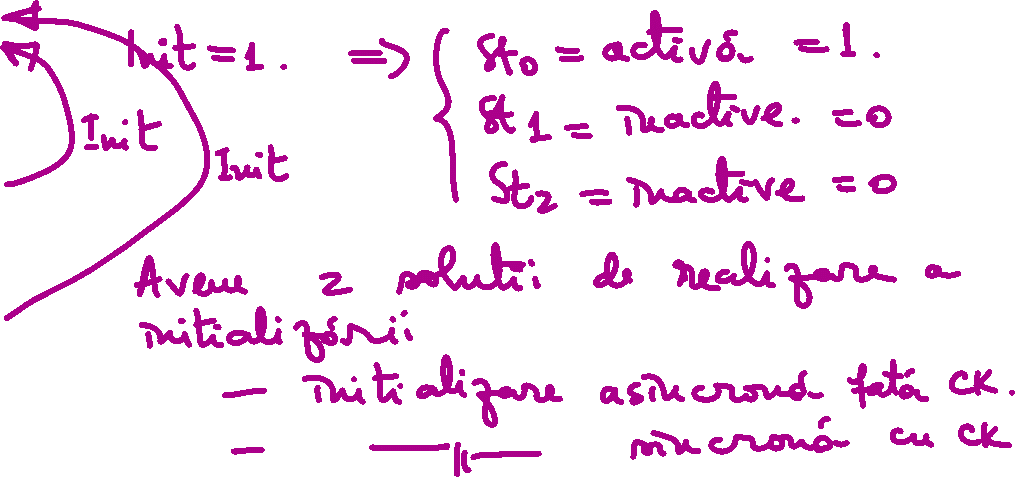 Init = 1. => { St0 = activă = 1.
Init St1 = inactive. = 0
Init St2 = inactive = 0
Avem 2 soluții de realizare a
inițializării
— inițializare asincronă față CK.
— —||— sincronă cu CK